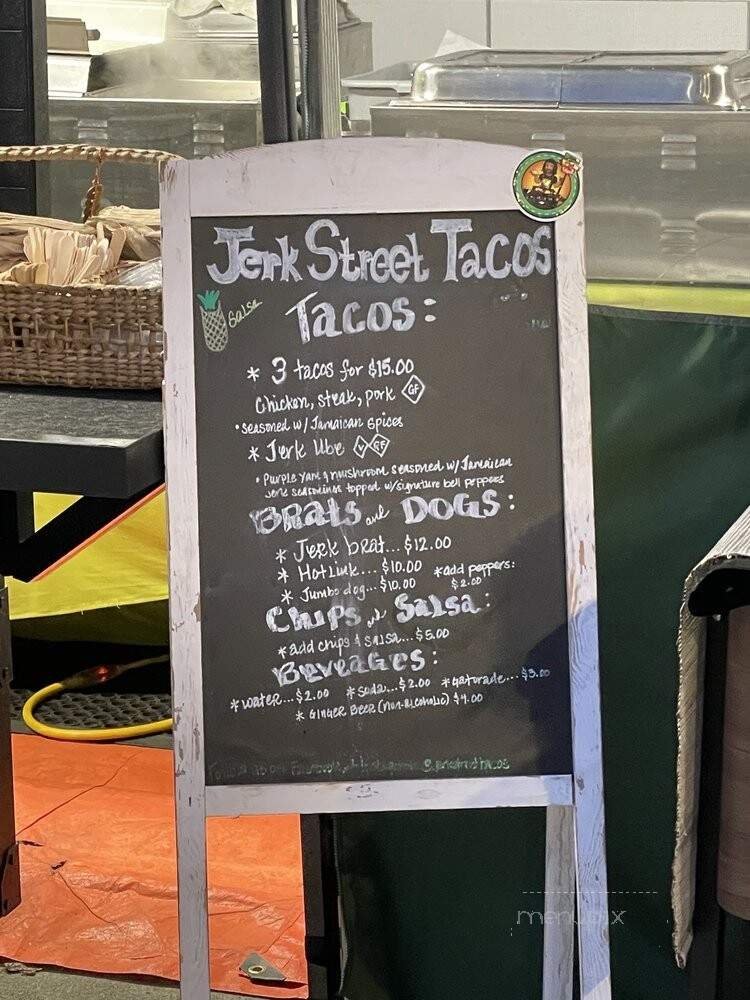 Jerk Street Tacos
Salsa
Tacos:
* 3 tacos for $15.00
Chicken, steak, pork GF
• seasoned w/ Jamaican spices
* Jerk Ube V GF
• Purple yam & mushroom seasoned w/ Jamaican
Jerk seasonings topped w/ signature bell peppers
BRATS and DOGS:
* Jerk brat... $12.00
* Hot Link.... $10.00 *add peppers:
* Jumbo dog... $10.00 $2.00
Chips and Salsa:
* add chips & salsa... $5.00
Beverages:
* water... $2.00 * soda... $2.00 * Gatorade... $3.00
* GINGER BEER (non-alcoholic) $4.00
@jerkstreettacos
menupix